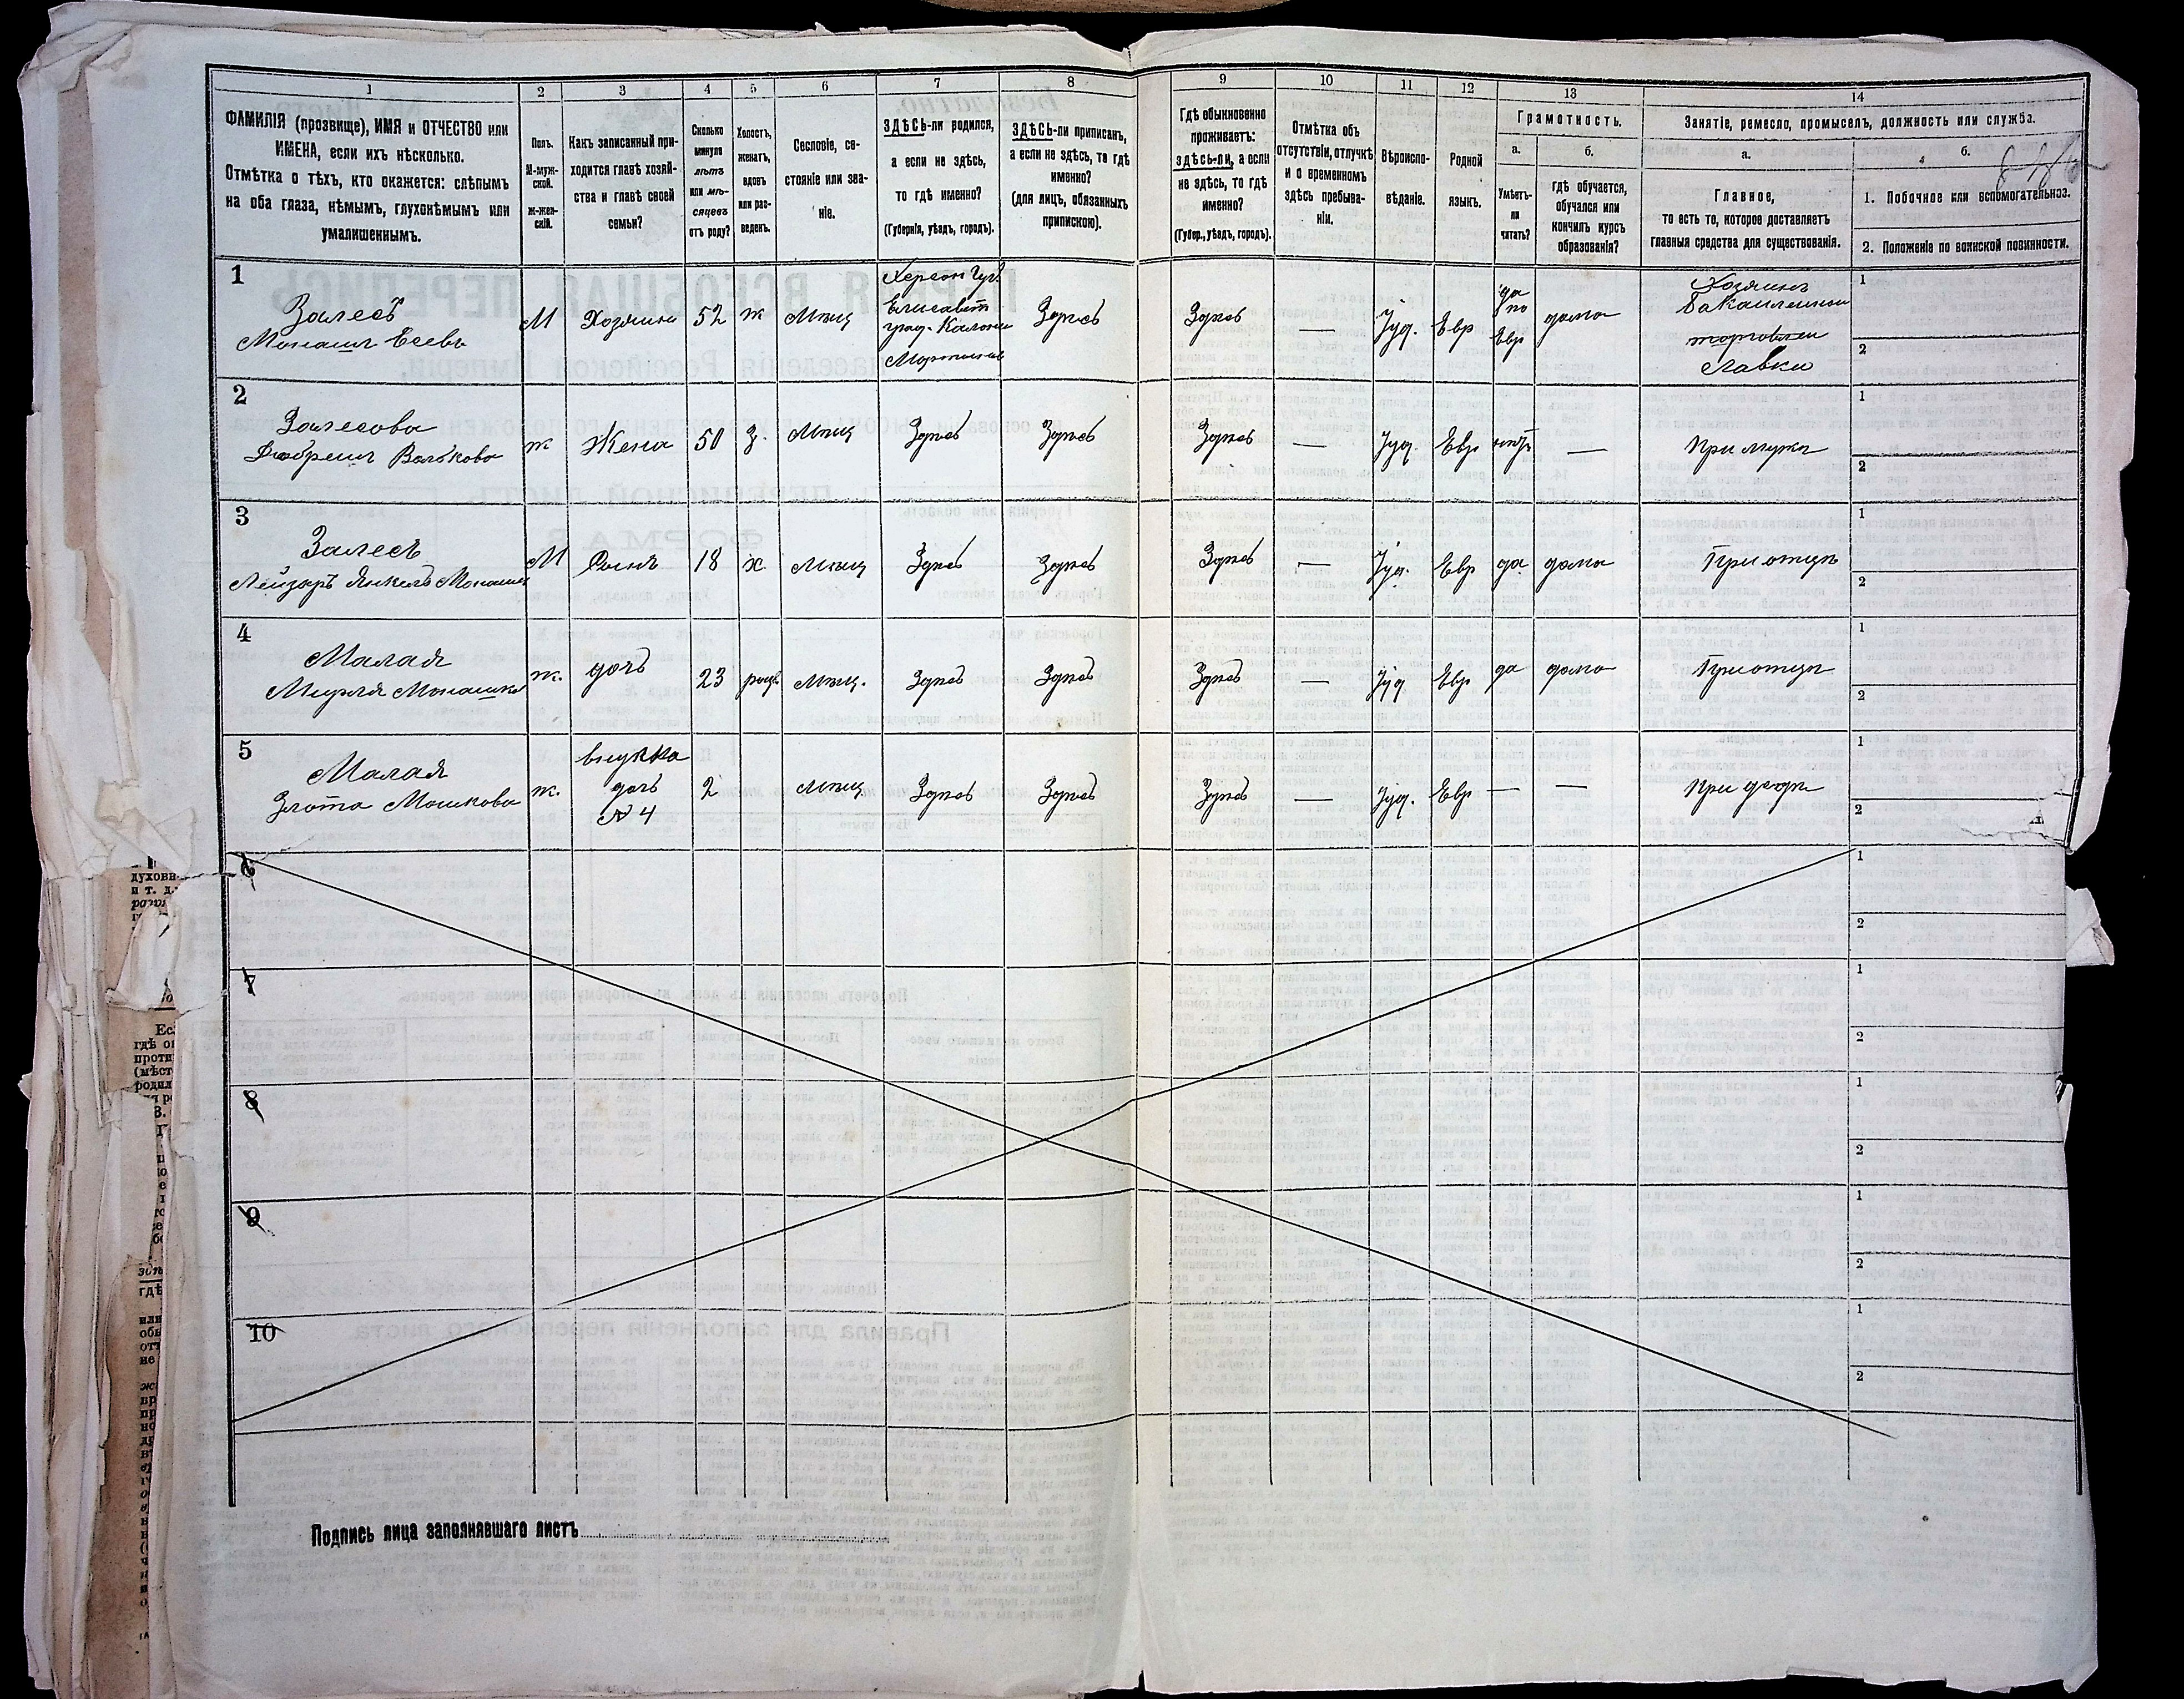 1 2 3 4 5 6 7 8 9 10 11 12 13 14
ФАМИЛІЯ (прозвище), ИМЯ и ОТЧЕСТВО или
ИМЕНА, если ихъ нѣсколько.
Отмѣтка о тѣхъ, кто окажется: слѣпымъ
на оба глаза, нѣмымъ, глухонѣмымъ или
умалишеннымъ.
Полъ.
М-муж-
ской.
Ж-жен-
скій.
Какъ записанный при-
ходится главѣ хозяй-
ства и главѣ своей
семьи?
Сколько
минуло
лѣтъ
или мѣ-
сяцевъ
отъ роду?
Холостъ,
женатъ,
вдовъ
или раз-
веденъ.
Сословіе, со-
стояніе или зва-
ніе.
ЗДѢСЬ-ли родился,
а если не здѣсь,
то гдѣ именно?
(Губернія, уѣздъ, городъ).
ЗДѢСЬ-ли приписанъ,
а если не здѣсь, то гдѣ
именно?
(для лицъ, обязанныхъ
припискою).
Гдѣ обыкновенно
проживаетъ:
здѣсь-ли, а если
не здѣсь, то гдѣ
именно?
(Губер., уѣздъ, городъ).
Отмѣтка объ
отсутствіи, отлучкѣ
и о временномъ
здѣсь пребыва-
ніи.
Вѣроиспо-
вѣданіе.
Родной
языкъ.
Грамотность.
а.
Умѣетъ-
ли
читать?
б.
гдѣ обучается,
обучался или
кончилъ курсъ
образованія?
Занятіе, ремесло, промыселъ, должность или служба.
а.
Главное,
то есть то, которое доставляетъ
главныя средства для существованія.
б.
1. Побочное или вспомогательное.
2. Положеніе по воинской повинности.
1
Залесъ
Монашъ Евевъ
М
Хозяинъ
52
ж
Мѣщ
Херсон Губ.
Елисавет
град. Колонiи
Здѣсь
Здѣсь
—
Iуд.
Евр
да
по
Евр
дома
Хозяинъ
бакалейной
торговли
Лавки
1
2
2
Залесова
Добрешъ Волькова
ж
Жена
50
З.
Мѣщ
Здѣсь
Здѣсь
Здѣсь
—
Iуд.
Евр
нѣтъ
—
При мужѣ
1
2
3
Залесъ
Лейзоръ Янкель Монашев
М
Сынъ
18
х
Мѣщ
Здѣсь
Здѣсь
Здѣсь
—
Iуд.
Евр
да
дома
При отцѣ
1
2
4
Малая
Мирля Монашева
ж.
дочь
23
разв.
Мѣщ.
Здѣсь
Здѣсь
Здѣсь
—
Iуд
Евр
да
дома
При отцѣ
1
2
5
Малая
Злота Мошкова
ж.
внучка
дочь
№ 4
2
Мѣщ
Здѣсь
Здѣсь
Здѣсь
—
Iуд.
Евр
—
—
При дѣдѣ
1
2
6
1
2
7
1
2
8
1
2
9
1
2
10
1
2
Подпись лица заполнявшаго листъ